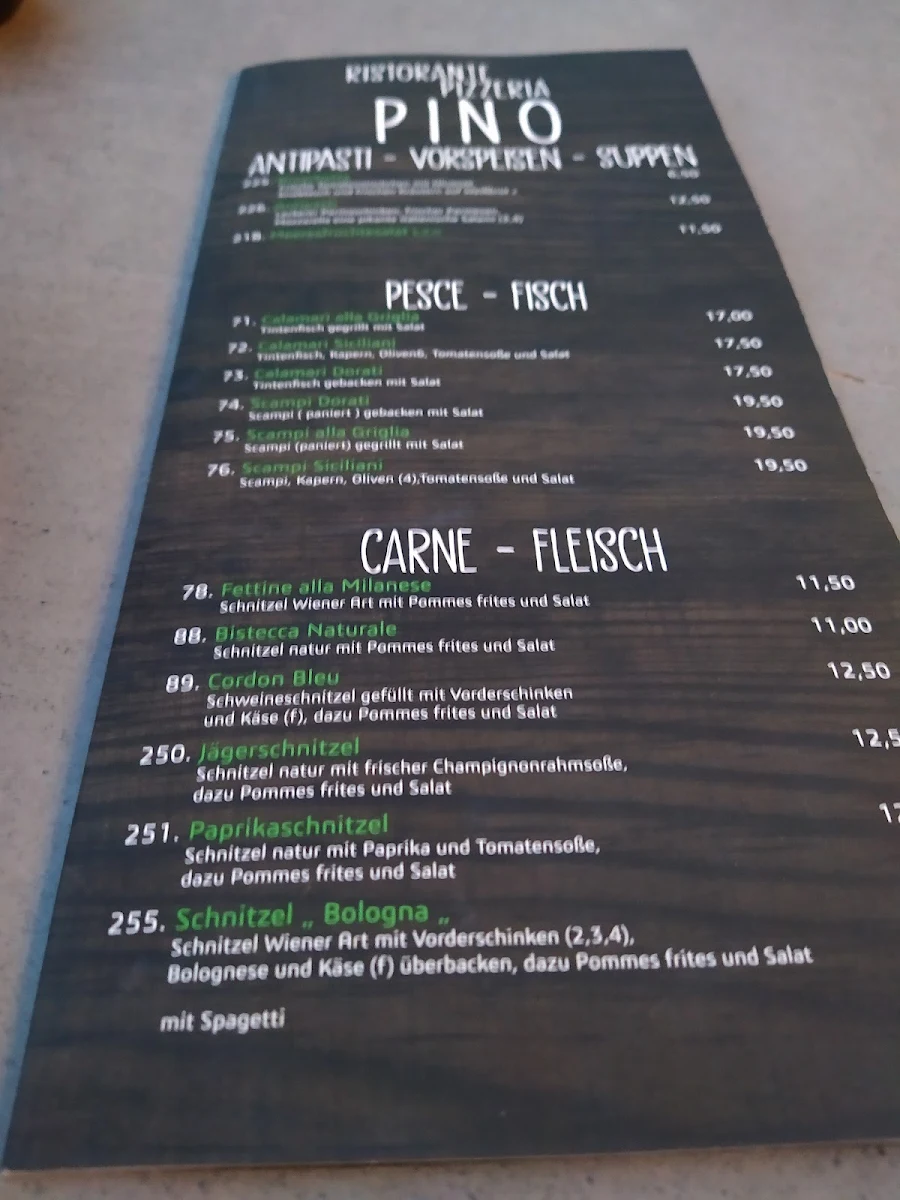 RISTORANTE
PIZZERIA
PINO
ANTIPASTI - VORSPEISEN - SUPPEN
6,50
12,50
218. Meeresfrüchtesalat 11,50
PESCE - FISCH
71. Calamari alla Griglia 17,00
Tintenfisch gegrillt mit Salat
72. Calamari Siciliani 17,50
Tintenfisch, Kapern, Oliven6, Tomatensoße und Salat
73. Calamari Dorati 17,50
Tintenfisch gebacken mit Salat
74. Scampi Dorati 19,50
Scampi ( paniert ) gebacken mit Salat
75. Scampi alla Griglia 19,50
Scampi (paniert) gegrillt mit Salat
76. Scampi Siciliani 19,50
Scampi, Kapern, Oliven (4),Tomatensoße und Salat
CARNE - FLEISCH
78. Fettine alla Milanese 11,50
Schnitzel Wiener Art mit Pommes frites und Salat
88. Bistecca Naturale 11,00
Schnitzel natur mit Pommes frites und Salat
89. Cordon Bleu 12,50
Schweineschnitzel gefüllt mit Vorderschinken
und Käse (f), dazu Pommes frites und Salat
250. Jägerschnitzel 12,5
Schnitzel natur mit frischer Champignonrahmsoße,
dazu Pommes frites und Salat
251. Paprikaschnitzel
Schnitzel natur mit Paprika und Tomatensoße,
dazu Pommes frites und Salat
255. Schnitzel „ Bologna „
Schnitzel Wiener Art mit Vorderschinken (2,3,4),
Bolognese und Käse (f) überbacken, dazu Pommes frites und Salat
mit Spagetti